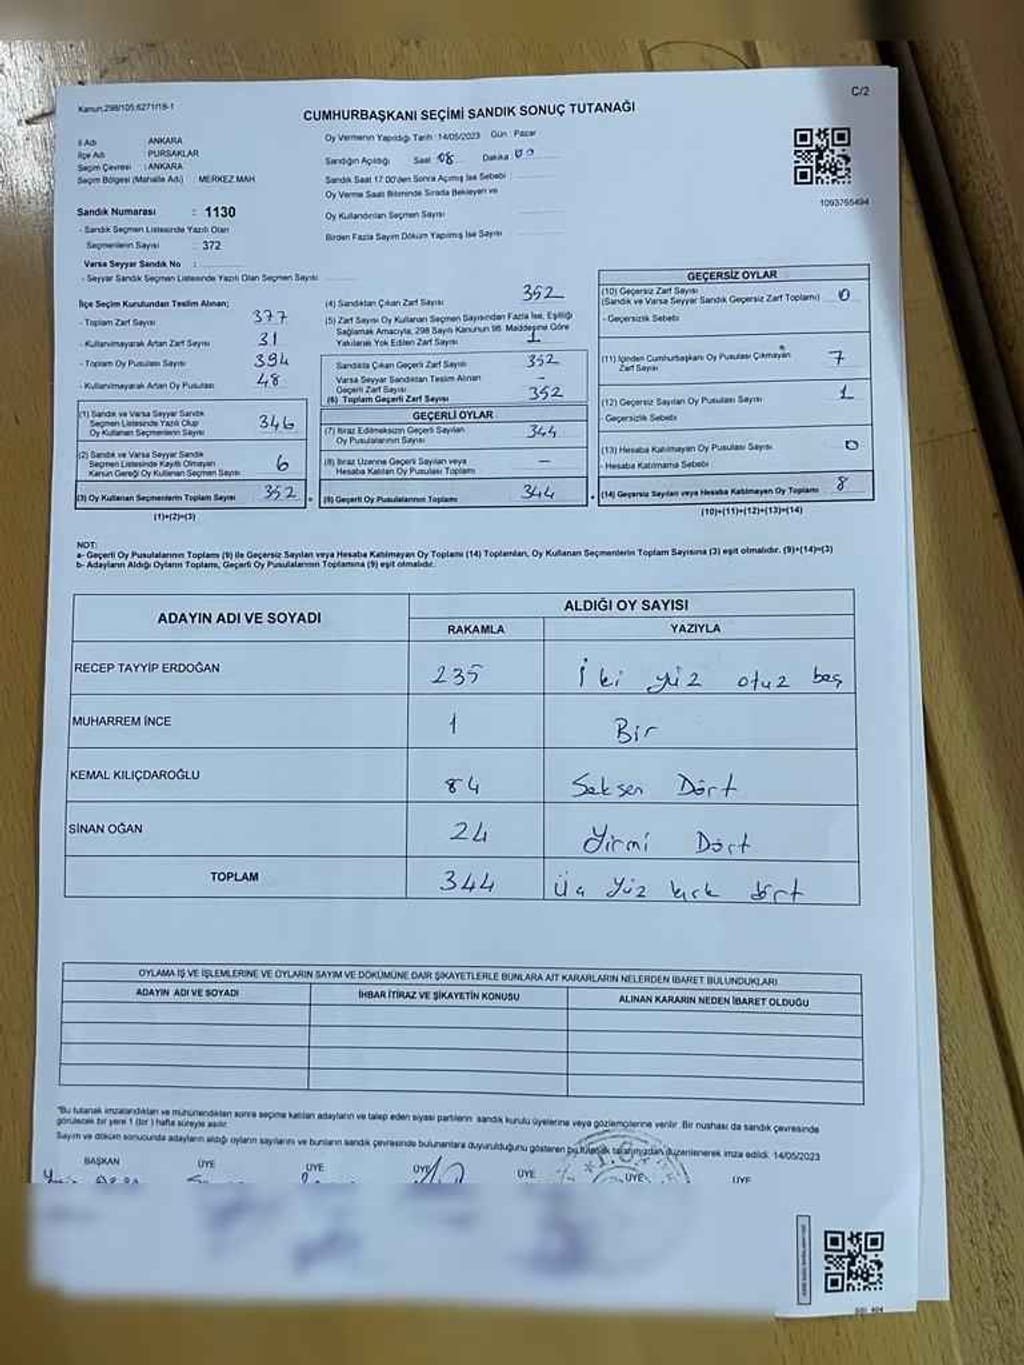 Kanun:298/105,6271/18-1
C/2
CUMHURBAŞKANI SEÇİMİ SANDIK SONUÇ TUTANAĞI
İl Adı : ANKARA
İlçe Adı : PURSAKLAR
Seçim Çevresi : ANKARA
Seçim Bölgesi (Mahalle Adı) : MERKEZ MAH
Sandık Numarası : 1130
- Sandık Seçmen Listesinde Yazılı Olan
Seçmenlerin Sayısı : 372
Varsa Seyyar Sandık No :
- Seyyar Sandık Seçmen Listesinde Yazılı Olan Seçmen Sayısı:
Oy Vermenin Yapıldığı Tarih :14/05/2023 Gün : Pazar
Sandığın Açıldığı Saat : 08 Dakika : 00
Sandık Saat 17.00'den Sonra Açılmış İse Sebebi :
Oy Verme Saati Bitiminde Sırada Bekleyen ve
Oy Kullandırılan Seçmen Sayısı
Birden Fazla Sayım Döküm Yapılmış İse Sayısı
1093765494
İlçe Seçim Kurulundan Teslim Alınan;
- Toplam Zarf Sayısı 377
- Kullanılmayarak Artan Zarf Sayısı 31
- Toplam Oy Pusulası Sayısı 394
- Kullanılmayarak Artan Oy Pusulası 48
(1) Sandık ve Varsa Seyyar Sandık
Seçmen Listesinde Yazılı Olup
Oy Kullanan Seçmenlerin Sayısı 346
(2) Sandık ve Varsa Seyyar Sandık
Seçmen Listesinde Kayıtlı Olmayan
Kanun Gereği Oy Kullanan Seçmen Sayısı 6
(3) Oy Kullanan Seçmenlerin Toplam Sayısı 352
(1)+(2)=(3)
(4) Sandıktan Çıkan Zarf Sayısı 352
(5) Zarf Sayısı Oy Kullanan Seçmen Sayısından Fazla İse, Eşitliği
Sağlamak Amacıyla, 298 Sayılı Kanunun 98. Maddesine Göre
Yakılarak Yok Edilen Zarf Sayısı 1
Sandıkta Çıkan Geçerli Zarf Sayısı 352
Varsa Seyyar Sandıktan Teslim Alınan
Geçerli Zarf Sayısı -
(6) Toplam Geçerli Zarf Sayısı 352
GEÇERLİ OYLAR
(7) İtiraz Edilmeksizin Geçerli Sayılan
Oy Pusulalarının Sayısı 344
(8) İtiraz Üzerine Geçerli Sayılan veya
Hesaba Katılan Oy Pusulası Toplamı -
(9) Geçerli Oy Pusulalarının Toplamı 344
GEÇERSİZ OYLAR
(10) Geçersiz Zarf Sayısı
(Sandık ve Varsa Seyyar Sandık Geçersiz Zarf Toplamı) 0
- Geçersizlik Sebebi
(11) İçinden Cumhurbaşkanı Oy Pusulası Çıkmayan
Zarf Sayısı 7
(12) Geçersiz Sayılan Oy Pusulası Sayısı 1
- Geçersizlik Sebebi
(13) Hesaba Katılmayan Oy Pusulası Sayısı 0
- Hesaba Katılmama Sebebi
(14) Geçersiz Sayılan veya Hesaba Katılmayan Oy Toplamı 8
(10)+(11)+(12)+(13)=(14)
NOT:
a- Geçerli Oy Pusulalarının Toplamı (9) ile Geçersiz Sayılan veya Hesaba Katılmayan Oy Toplamı (14) Toplamları, Oy Kullanan Seçmenlerin Toplam Sayısına (3) eşit olmalıdır. (9)+(14)=(3)
b- Adayların Aldığı Oyların Toplamı, Geçerli Oy Pusulalarının Toplamına (9) eşit olmalıdır.
ADAYIN ADI VE SOYADI ALDIĞI OY SAYISI
RAKAMLA YAZIYLA
RECEP TAYYİP ERDOĞAN 235 İki yüz otuz beş
MUHARREM İNCE 1 Bir
KEMAL KILIÇDAROĞLU 84 Seksen Dört
SİNAN OĞAN 24 Yirmi Dört
TOPLAM 344 Üç Yüz kırk dört
OYLAMA İŞ VE İŞLEMLERİNE VE OYLARIN SAYIM VE DÖKÜMÜNE DAİR ŞİKAYETLERLE BUNLARA AİT KARARLARIN NELERDEN İBARET BULUNDUKLARI
ADAYIN ADI VE SOYADI İHBAR İTİRAZ VE ŞİKAYETİN KONUSU ALINAN KARARIN NEDEN İBARET OLDUĞU
"Bu tutanak imzalandıktan ve mühürlendikten sonra seçime katılan adayların ve talep eden siyasi partilerin sandık kurulu üyelerine veya gözlemcilerine verilir. Bir nushası da sandık çevresinde
görülecek bir yere 1 (bir) hafta süreyle asılır.
Sayım ve döküm sonucunda adayların aldığı oyların sayılarını ve bunların sandık çevresinde bulunanlara duyurulduğunu gösteren bu tutanak tarafımızdan düzenlenerek imza edildi. 14/05/2023
BAŞKAN ÜYE ÜYE ÜYE ÜYE ÜYE ÜYE